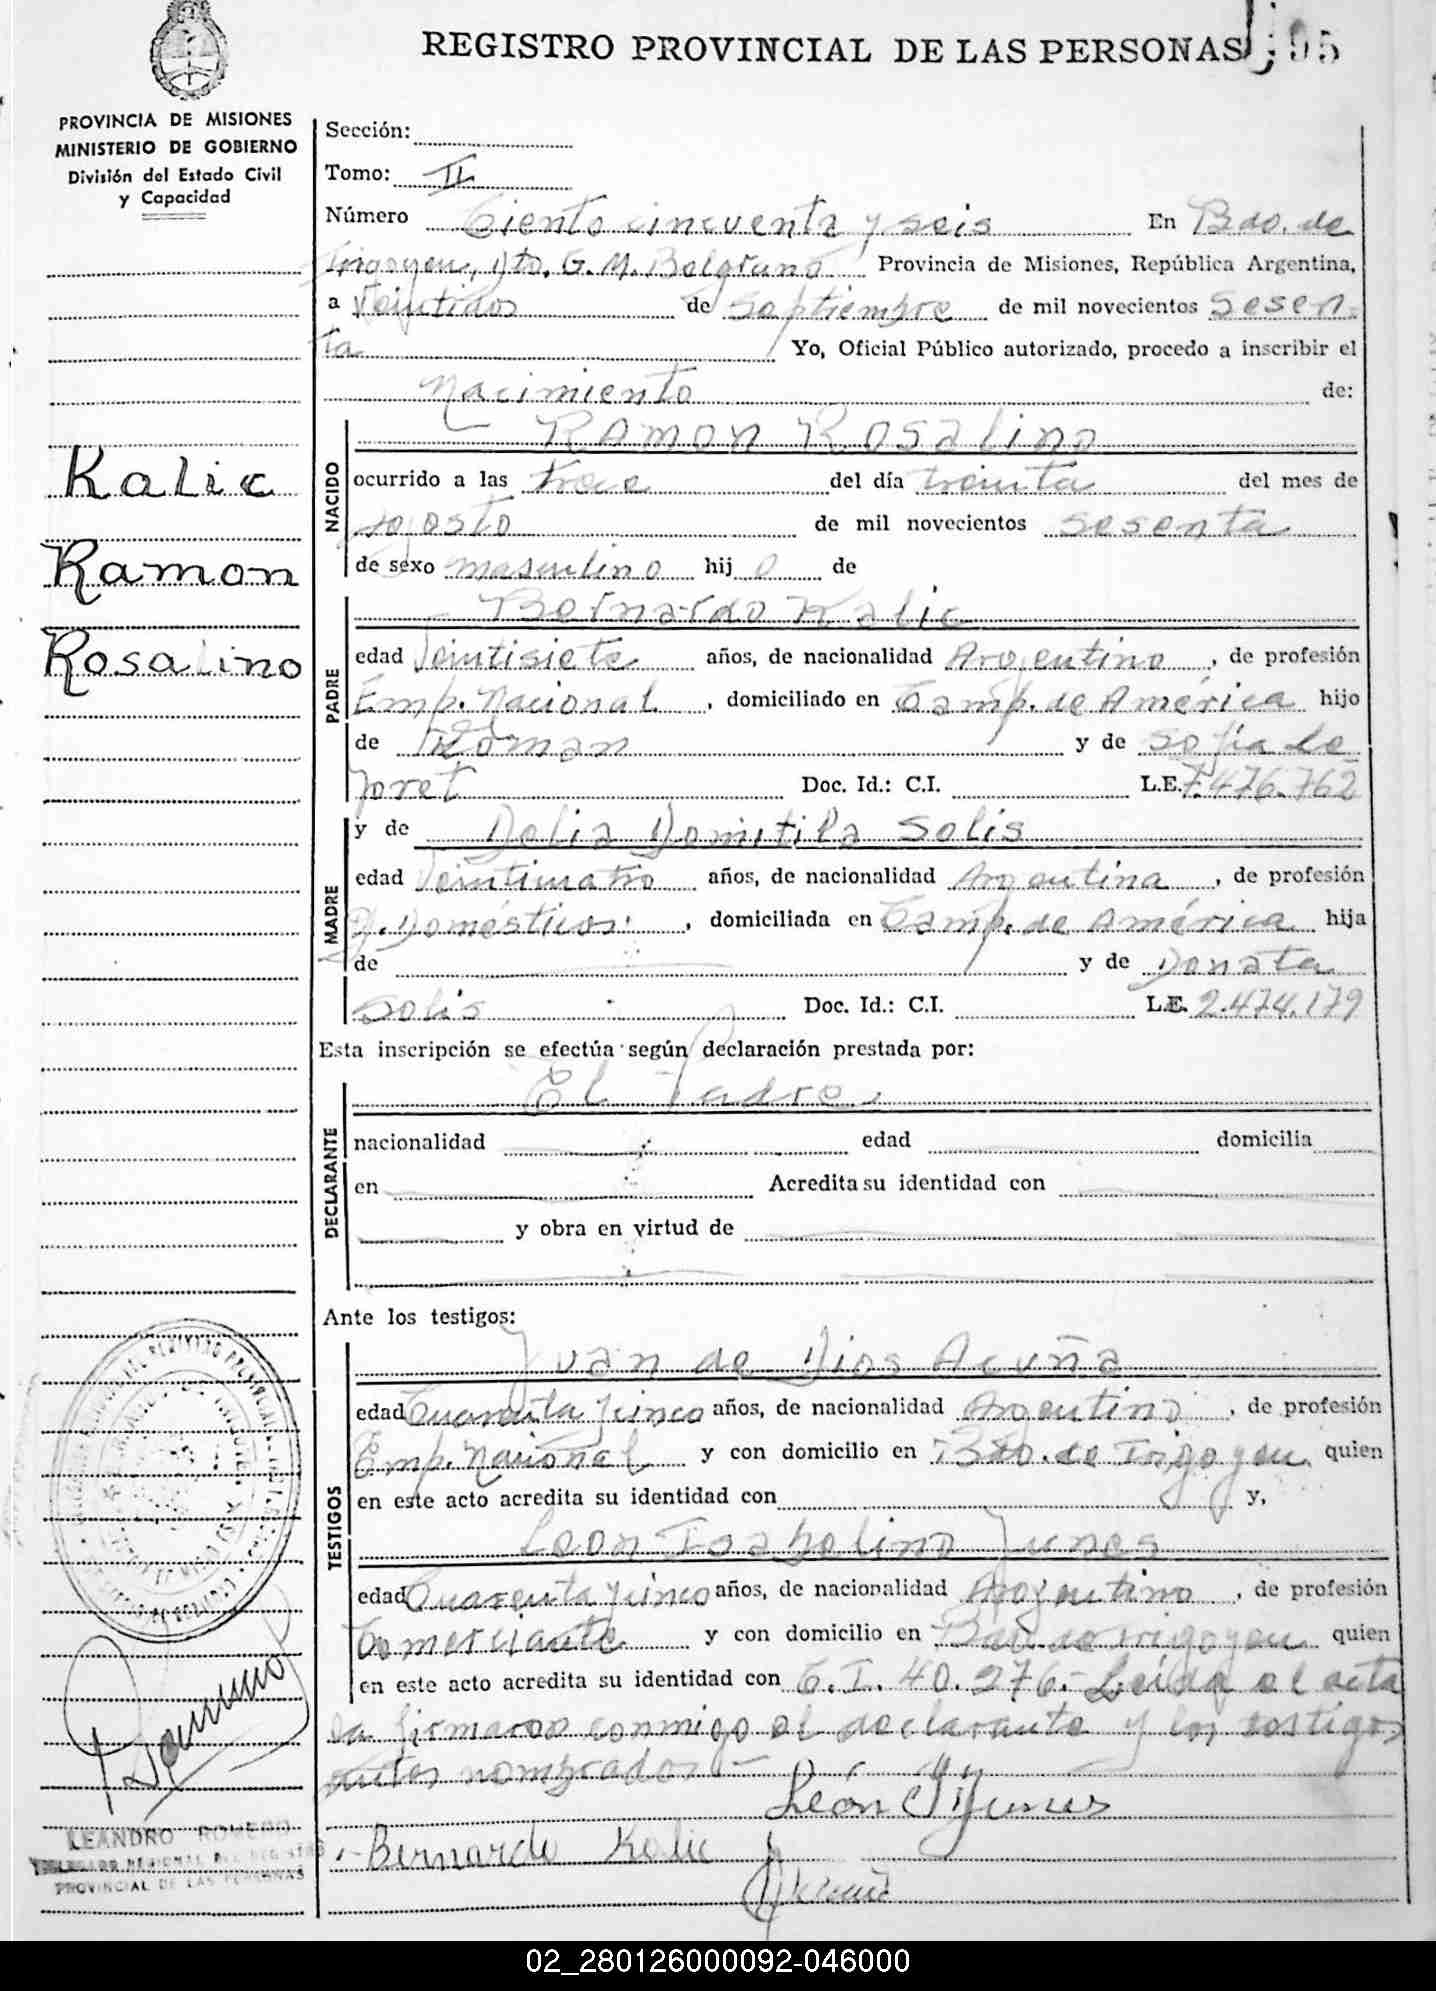 REGISTRO PROVINCIAL DE LAS PERSONAS
PROVINCIA DE MISIONES
MINISTERIO DE GOBIERNO
División del Estado Civil
y Capacidad
Kalic
Ramon
Rosalino
Sección:
Tomo: II
Número Ciento cincuenta y seis En Bdo. de
Irigoyen, Dto. G. M. Belgrano Provincia de Misiones, República Argentina,
a Veintidos de Septiembre de mil novecientos Sesen-
ta Yo, Oficial Público autorizado, procedo a inscribir el
Nacimiento de:
NACIDO
Ramon Rosalino
ocurrido a las trece del día treinta del mes de
agosto de mil novecientos sesenta
de sexo masculino hijo de
PADRE
Bernardo Kalic
edad Veintisiete años, de nacionalidad Argentino, de profesión
Emp. Nacional, domiciliado en Camp. de América hijo
de Roman y de Sofia de
Joret Doc. Id.: C.I. L.E. 7.476.762
MADRE
y de Delia Domitila Solis
edad Veinticuatro años, de nacionalidad Argentina, de profesión
Q. Domésticos, domiciliada en Camp. de América hija
de y de Donata
Solis Doc. Id.: C.I. L.E. 2.474.179
Esta inscripción se efectúa según declaración prestada por:
DECLARANTE
El Padre
nacionalidad edad domicilia
en Acredita su identidad con
y obra en virtud de
Ante los testigos:
TESTIGOS
Juan de Dios Acuña
edad Cuarenta y cinco años, de nacionalidad Argentino, de profesión
Emp. Nacional y con domicilio en Bdo. de Irigoyen quien
en este acto acredita su identidad con y,
Leon Isabelino Junes
edad Cuarenta y cinco años, de nacionalidad Argentino, de profesión
Comerciante y con domicilio en Bdo. de Irigoyen quien
en este acto acredita su identidad con C.I. 40.276.- Leída el acta
la firmaron conmigo el declarante y los testigos
antes nombrados.-
Bernardo Kalic
LEANDRO ROMERO
DELEGADO REGIONAL DEL REGISTRO
PROVINCIAL DE LAS PERSONAS
02_280126000092-046000